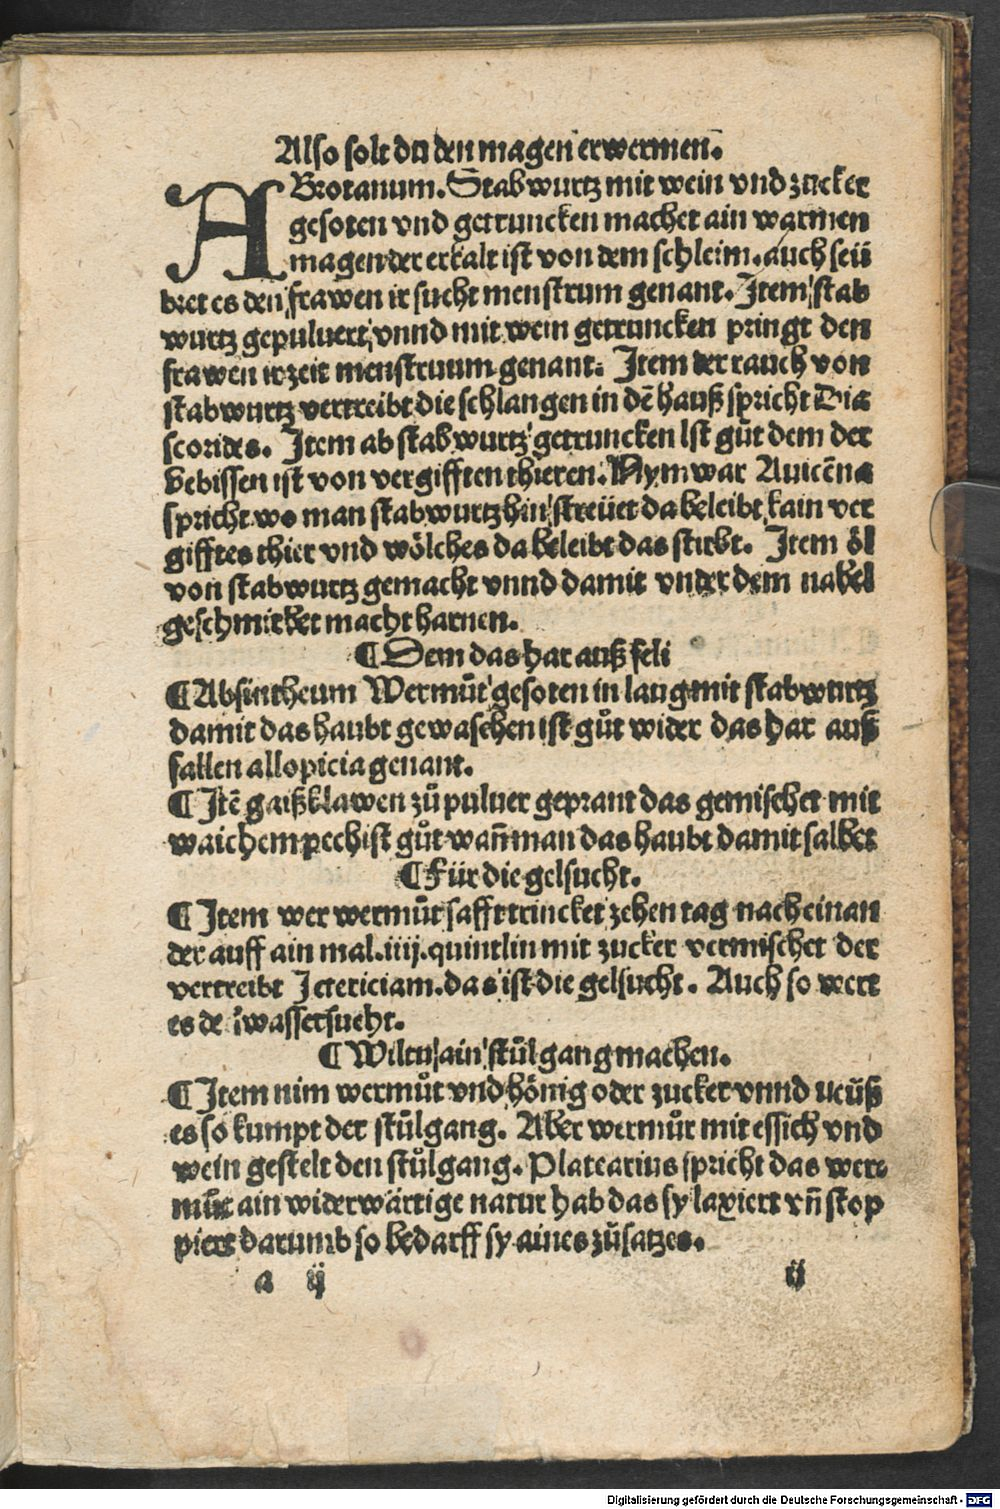 Also solt du den magen erwermen.
ABrotanum. Stabwurtz mit wein vnd zucker
gesoten vnd getruncken machet ain warmen
magen der erkalt ist von dem schleim. auch seü
bret es den frawen ir sucht menstrum genant. Item stab
wurtz gepuluert, vnnd mit wein getruncken pringt den
frawen irzeit menstruum genant. Item der rauch von
stabwurtz vertreibt die schlangen in dē hauß spricht Dia
scorides. Item ab stabwurtz getruncken Ist gůt dem der
bebissen ist von vergifften thieren. Nym war Auicēna
spricht wo man stabwurtz hin streüet da beleibt kain ver
gifftes thier vnd wölches da beleibt das stirbt. Item öl
von stabwurtz gemacht vnnd damit vnder dem nabel
geschmirbet macht harnen.
¶ Dem das har auß feli
¶ Absintheum Wermůt gesoten in laug mit stabwurtz
damit das haubt gewaschen ist gůt wider das har auß
fallen allopicia genant.
¶ Itē gaißklawen zů puluer geprant das gemischet mit
waichem pech ist gůt wañ man das haubt damit salbet
¶ Für die gelsucht.
¶ Item wer wermůt safft trincket zehen tag nach einan
der auff ain mal. iiij. quintlin mit zucker vermischet der
vertreibt Ictericiam. das ist die gelsucht. Auch so wert
es de wassersucht.
¶ Wiltu ain stůlgang machen.
¶ Item nim wermůt vnd hönig oder zucker vnnd neüß
es so kumpt der stůlgang. Aber wermůt mit essich vnd
wein gestelt den stůlgang. Platearius spricht das wer-
můt ain widerwärtige natur hab das sy laxiert vñ stop
piert darumb so bedarff sy aines zůsatzes.
a ij ij
Digitalisierung gefördert durch die Deutsche Forschungsgemeinschaft - DFG